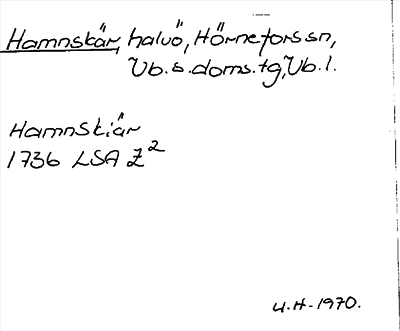 Hamnskär, halvö, Hörnefors sn,
Vb.s.doms.tg, Vb.l.
Hamnskiär
1736 LSA Z2
U.H-1970.